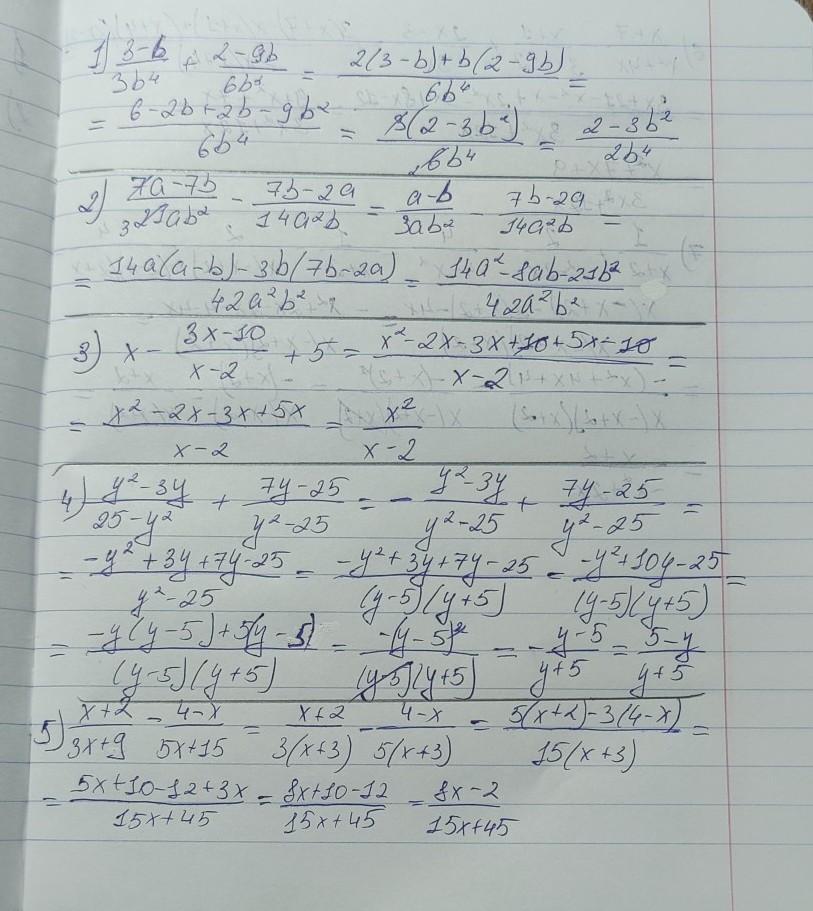 1) (3-b)/(3b⁴) + (2-9b)/(6b³) = (2(3-b)+b(2-9b))/(6b⁴) =
= (6-2b+2b-9b²)/(6b⁴) = (3(2-3b²))/(6b⁴) = (2-3b²)/(2b⁴)
2) (7a-7b)/(21ab²) - (7b-2a)/(14a²b) = (a-b)/(3ab²) - (7b-2a)/(14a²b) =
= (14a(a-b)-3b(7b-2a))/(42a²b²) = (14a²-8ab-21b²)/(42a²b²)
3) x - (3x-10)/(x-2) + 5 = (x²-2x-3x+10+5x-10)/(x-2) =
= (x²-2x-3x+5x)/(x-2) = x²/(x-2)
4) (y²-3y)/(25-y²) + (7y-25)/(y²-25) = - (y²-3y)/(y²-25) + (7y-25)/(y²-25) =
= (-y²+3y+7y-25)/(y²-25) = (-y²+3y+7y-25)/((y-5)(y+5)) = (-y²+10y-25)/((y-5)(y+5)) =
= (-y(y-5)+5(y-5))/((y-5)(y+5)) = (-(y-5)²)/((y-5)(y+5)) = - (y-5)/(y+5) = (5-y)/(y+5)
5) (x+2)/(3x+9) - (4-x)/(5x+15) = (x+2)/(3(x+3)) - (4-x)/(5(x+3)) = (5(x+2)-3(4-x))/(15(x+3)) =
= (5x+10-12+3x)/(15x+45) = (8x+10-12)/(15x+45) = (8x-2)/(15x+45)